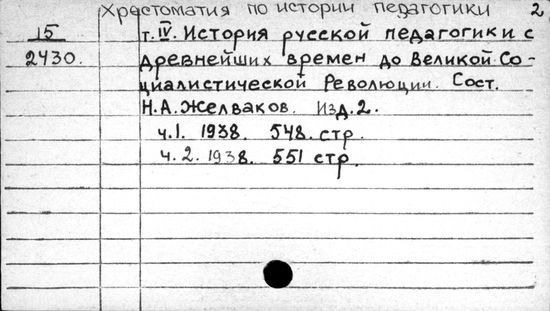 Хрестоматия по истории педагогики 2
15
2430.
т. IV. История русской педагогики с
древнейших времен до Великой Со-
циалистической Революции. Сост.
Н.А. Желваков. Изд. 2.
ч.1. 1938. 548. стр.
ч. 2. 1938. 551 стр.